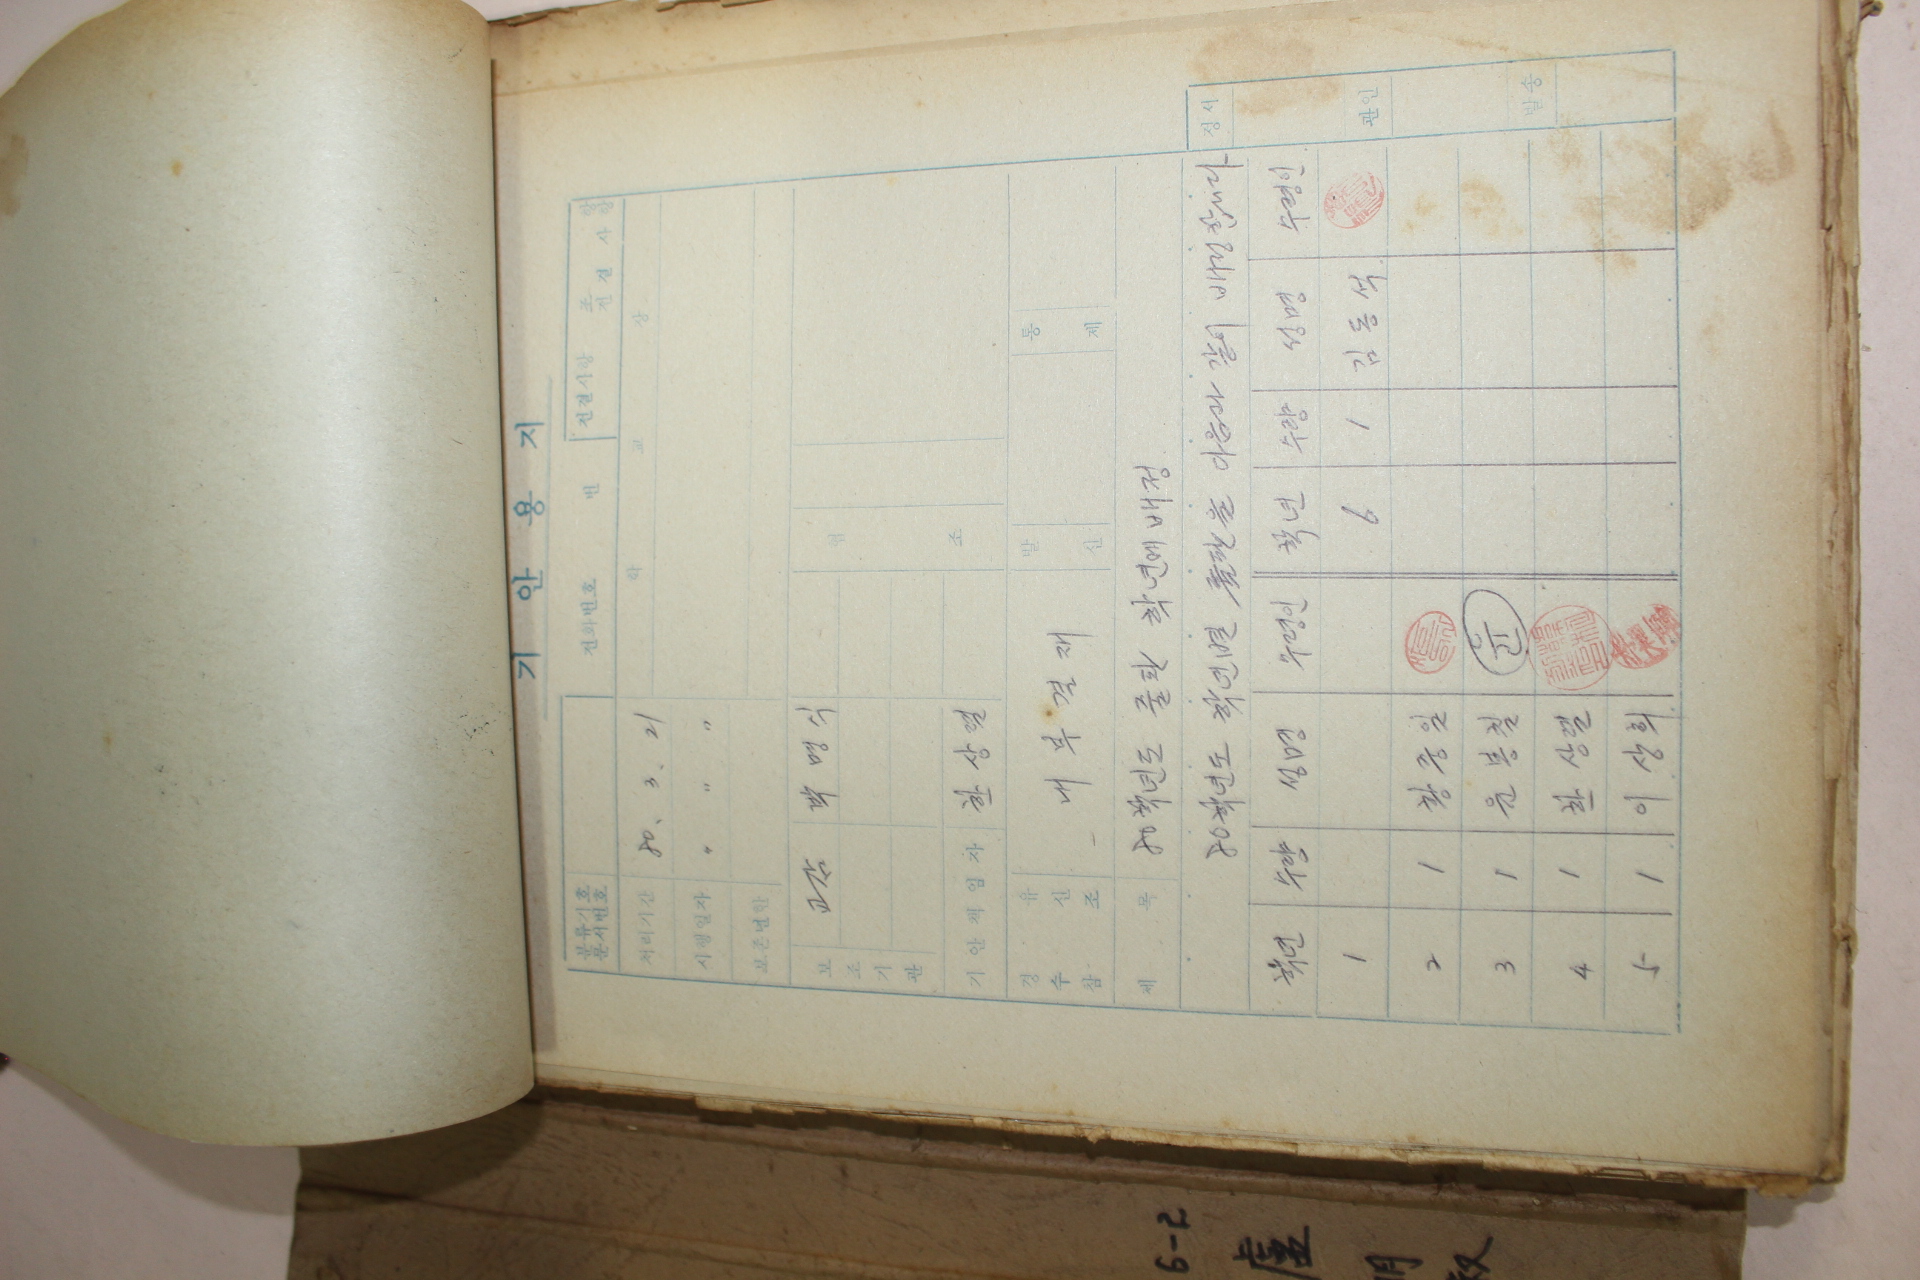 기 안 용 지
분류기호
문서번호
전화번호 번
전결사항 조 항
전결 사항
처리기간 80. 3. 21
학 교 장
시행일자 〃 〃 〃
보존년한
보조기관 교감 박명식
협조
기안책임자 한상렬
경유
수신
참조
내부결재
발신
통제
제 목 80학년도 줄판 학년에 배정
80학년도 학년별 줄판을 다음과 같이 배정합니다
정서
학년 수량 성명 수령인 학년 수량 성명 수령인
1 6 1 김동석
관인
2 1 황중일
3 1 윤봉칠 윤
발송
4 1 한상렬
5 1 이상희
6-2
盧
明
叔